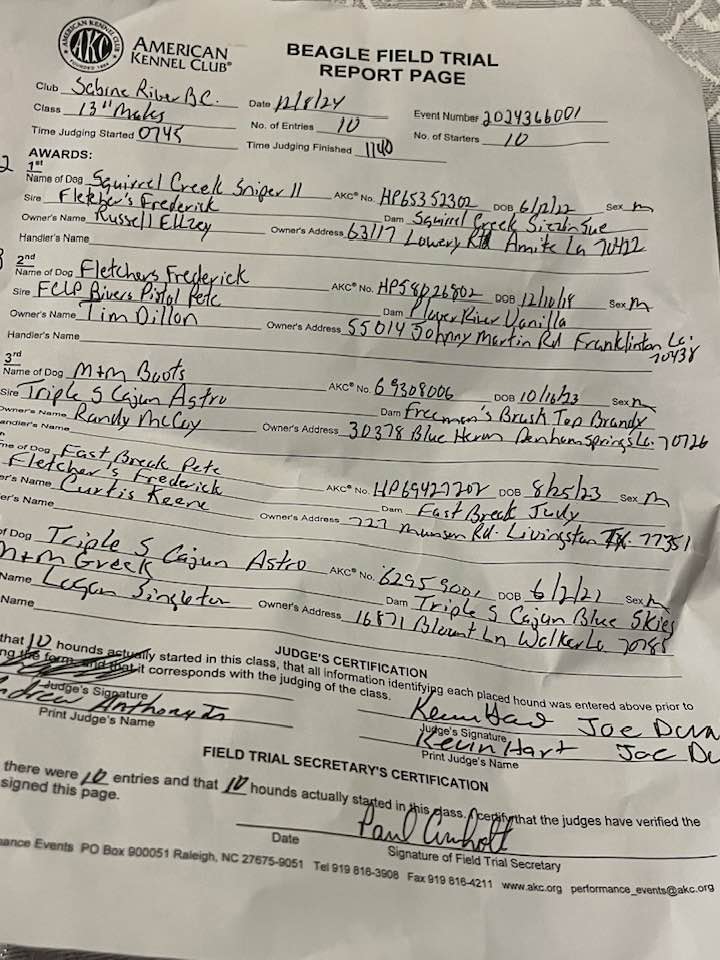 AMERICAN KENNEL CLUB
FOUNDED 1884
AKC
AMERICAN
KENNEL CLUB®
BEAGLE FIELD TRIAL
REPORT PAGE
Club Sabine River B.C. Date 12/8/24 Event Number 2024366001
Class 13" Males No. of Entries 10 No. of Starters 10
Time Judging Started 0745 Time Judging Finished 1140
AWARDS:
1st
Name of Dog Squirrel Creek Sniper II AKC® No. HP65352302 DOB 6/12/22 Sex m
Sire Fletcher's Frederick Dam Squirrel Creek Sizzlin Sue
Owner's Name Russell Ellzey Owner's Address 63117 Lowery Rd Amite La 70422
Handler's Name
2nd
Name of Dog Fletchers Frederick AKC® No. HP58026802 DOB 12/10/18 Sex m
Sire FCLP Rivers Pistol Pete Dam Player River Vanilla
Owner's Name Tim Dillon Owner's Address 55014 Johnny Martin Rd Franklinton La. 70438
Handler's Name
3rd
Name of Dog M+M Boots AKC® No. 69308006 DOB 10/16/23 Sex m
Sire Triple S Cajun Astro Dam Freeman's Brush Top Brandy
Owner's Name Randy McCoy Owner's Address 30378 Blue Heron Denham Springs La. 70726
andler's Name
me of Dog Fast Break Pete AKC® No. HP69427202 DOB 8/25/23 Sex m
Fletcher's Frederick Dam Fast Break Judy
er's Name Curtis Keene Owner's Address 727 Munson Rd. Livingston TX. 77351
er's Name
of Dog Triple S Cajun Astro AKC® No. DOB Sex m
M+M Greek Dam Triple S Cajun Blue Skies
Name Logan Singleton Owner's Address 16871 Blount Ln Walker La. 70785
Name
JUDGE'S CERTIFICATION
that 10 hounds actually started in this class, that all information identifying each placed hound was entered above prior to
ng the form, and that it corresponds with the judging of the class.
Judge's Signature Judge's Signature
Anthony Jr Kevin Hart Joe
Print Judge's Name Print Judge's Name
FIELD TRIAL SECRETARY'S CERTIFICATION
there were 10 entries and that 10 hounds actually started in this class. I certify that the judges have verified the
signed this page.
Paul
Date Signature of Field Trial Secretary
mance Events PO Box 900051 Raleigh, NC 27675-9051 Tel 919 816-3908 Fax 919 816-4211 www.akc.org performance_events@akc.org